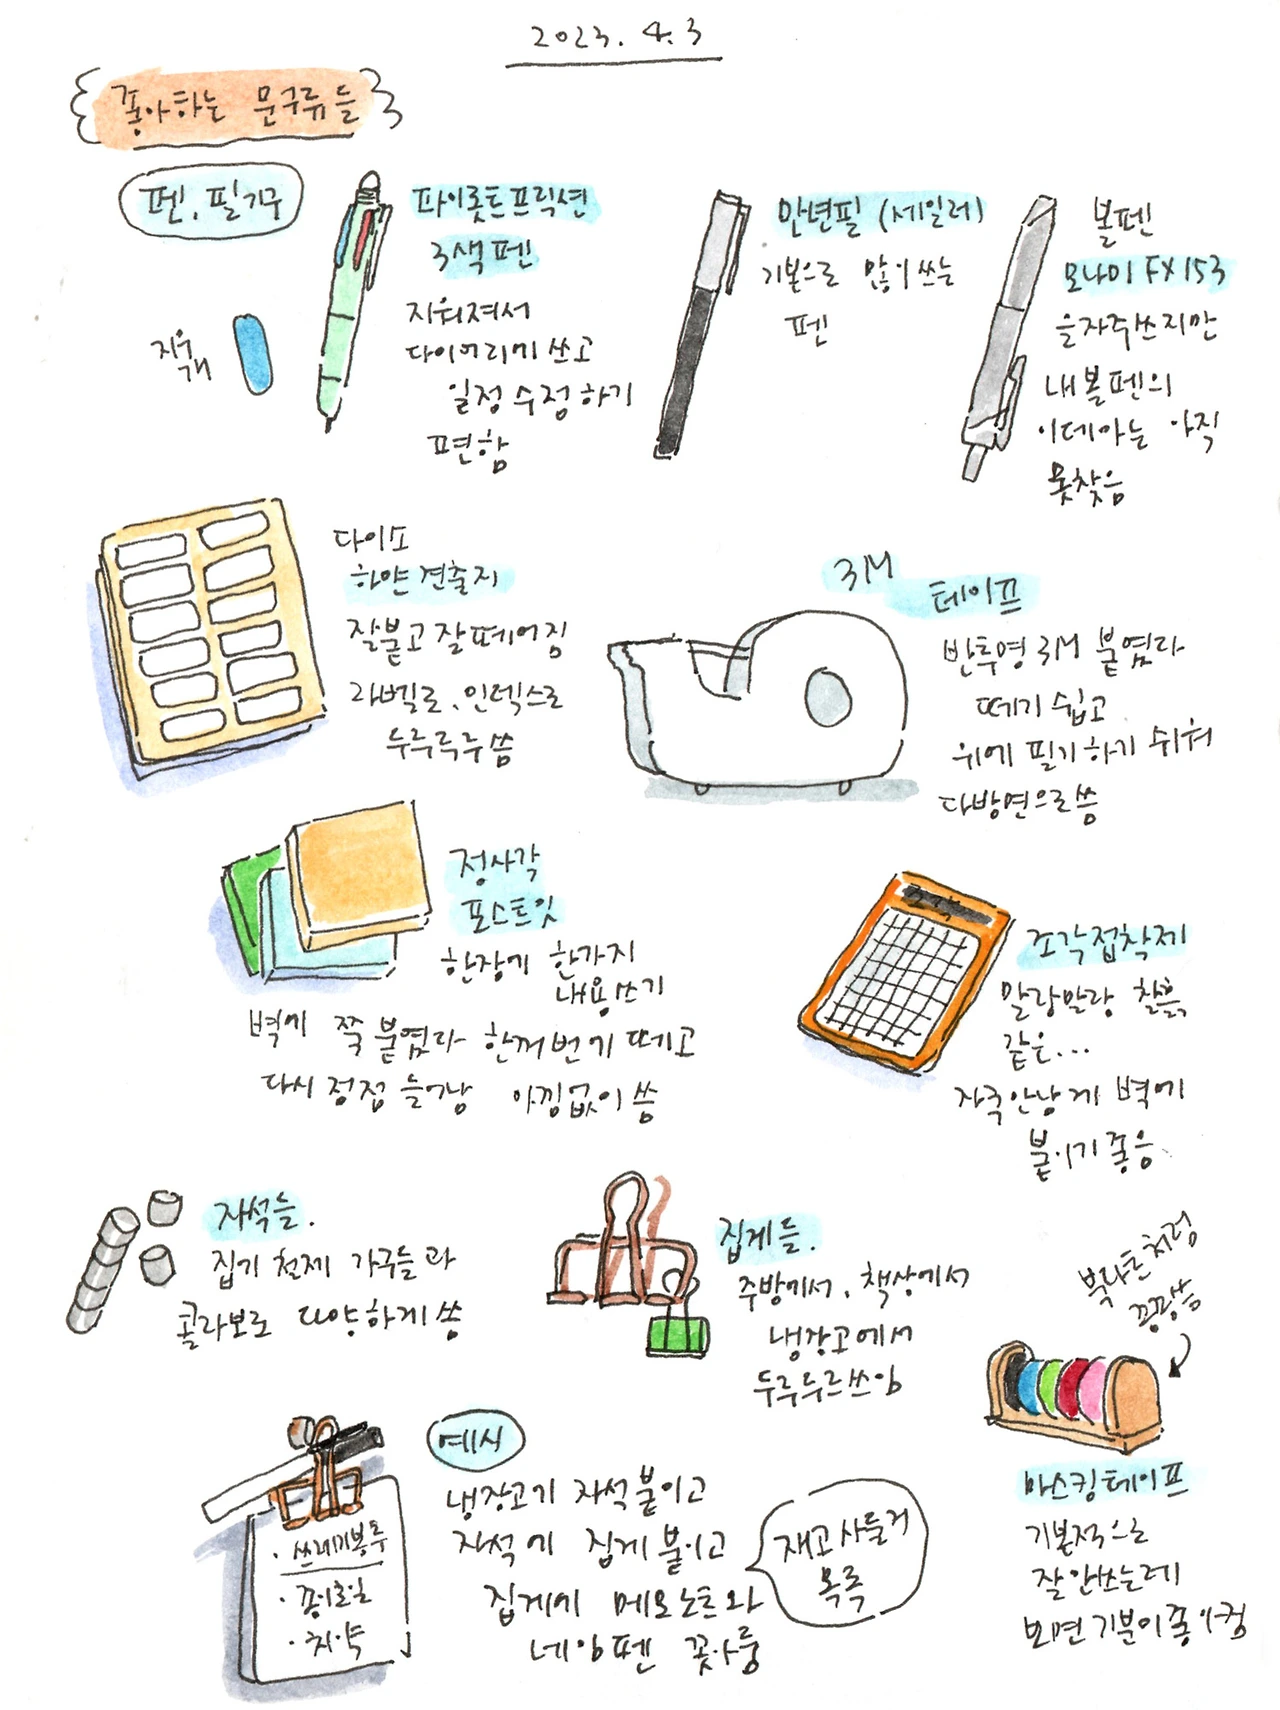 2023. 4. 3
좋아하는 문구류들
펜, 필기구
지우개
파이롯트프릭션
3색펜
지워져서
다이어리에 쓰고
일정 수정하기
편함
만년필 (세일러)
기본으로 많이 쓰는
펜
볼펜
모나미 FX 153
을 자주쓰지만
내 볼펜의
이데아는 아직
못찾음
다이소
하얀 견출지
잘붙고 잘떼어짐
라벨로, 인덱스로
두루루루 씀
3M
테이프
반투명 3M 붙였다
떼기 쉽고
위에 필기하기 쉬워
다방면으로씀
정사각
포스트잇
한장에 한가지
내용쓰기
벽에 쭉 붙였다 한꺼번에 떼고
다시 정접 늘어남 아낌없이 씀
조각접착제
말랑말랑 찰흙
같은...
자국안남게 벽에
붙이기 좋음
자석들.
집기 전체 가구들과
콜라보로 다양하게 씀
집게들.
주방에서, 책상에서
냉장고에서
두루두루쓰임
북다트처럼
마스킹테이프
기본적으로
잘안쓰는데
보면 기분이좋아짐
예시
냉장고에 자석붙이고
자석에 집게 붙이고
집게에 메모노트와
네임펜 꽂아둠
재고 사들거
목록
· 쓰레기봉투
· 종이호일
· 치약